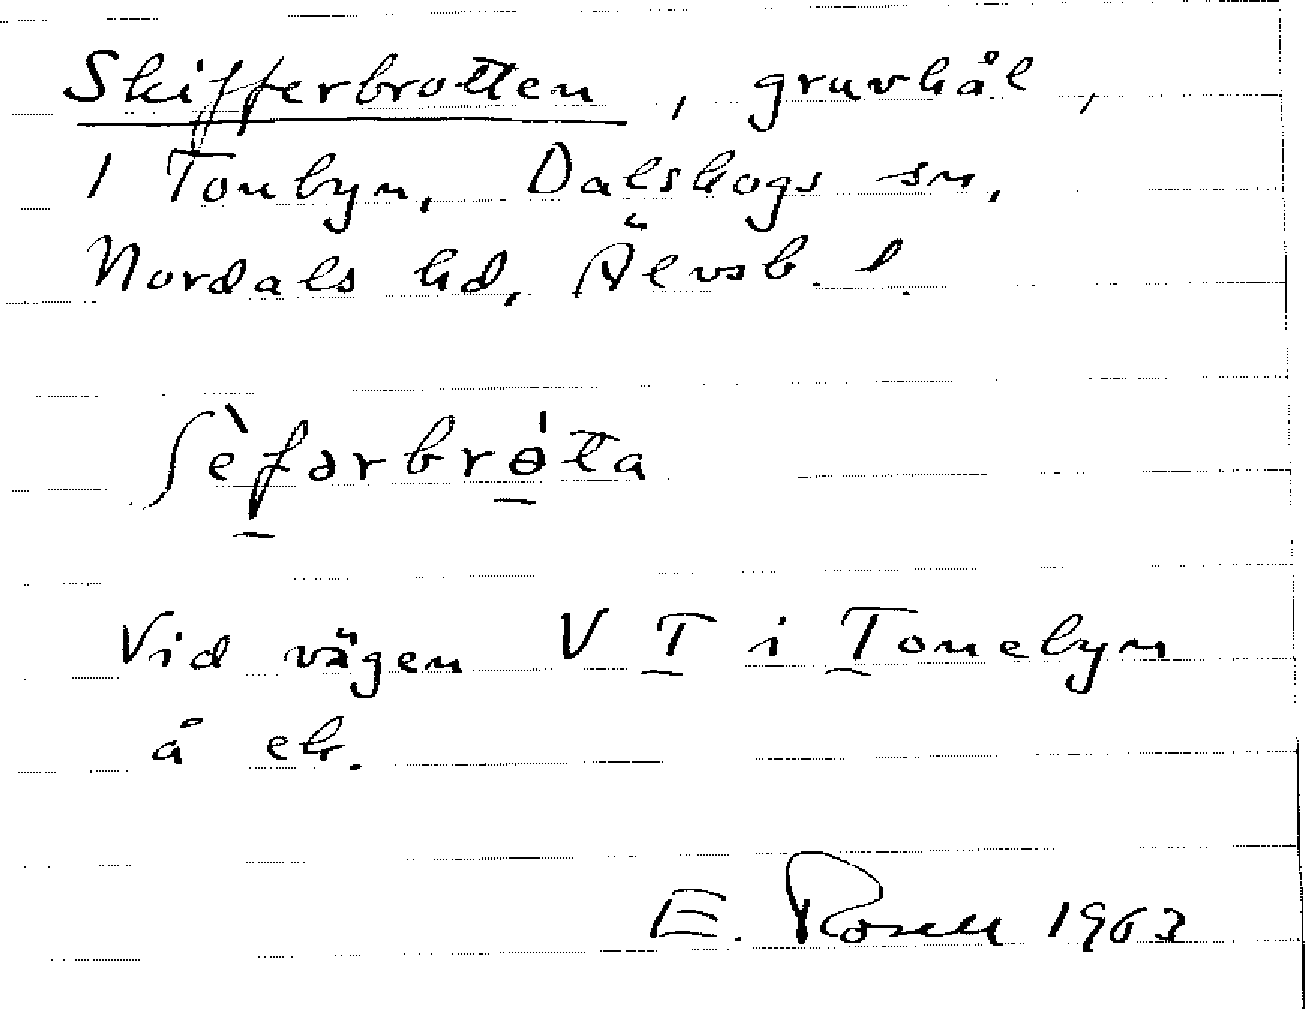 Skifferbrotten, gruvhål,
1 Tonbyn, Dalskogs sn,
Nordals hd, Älvsb. l.
ʃèfərbrɵ́ta
Vid vägen V T i Tonebyn
å ek.
E. Rosell 1963